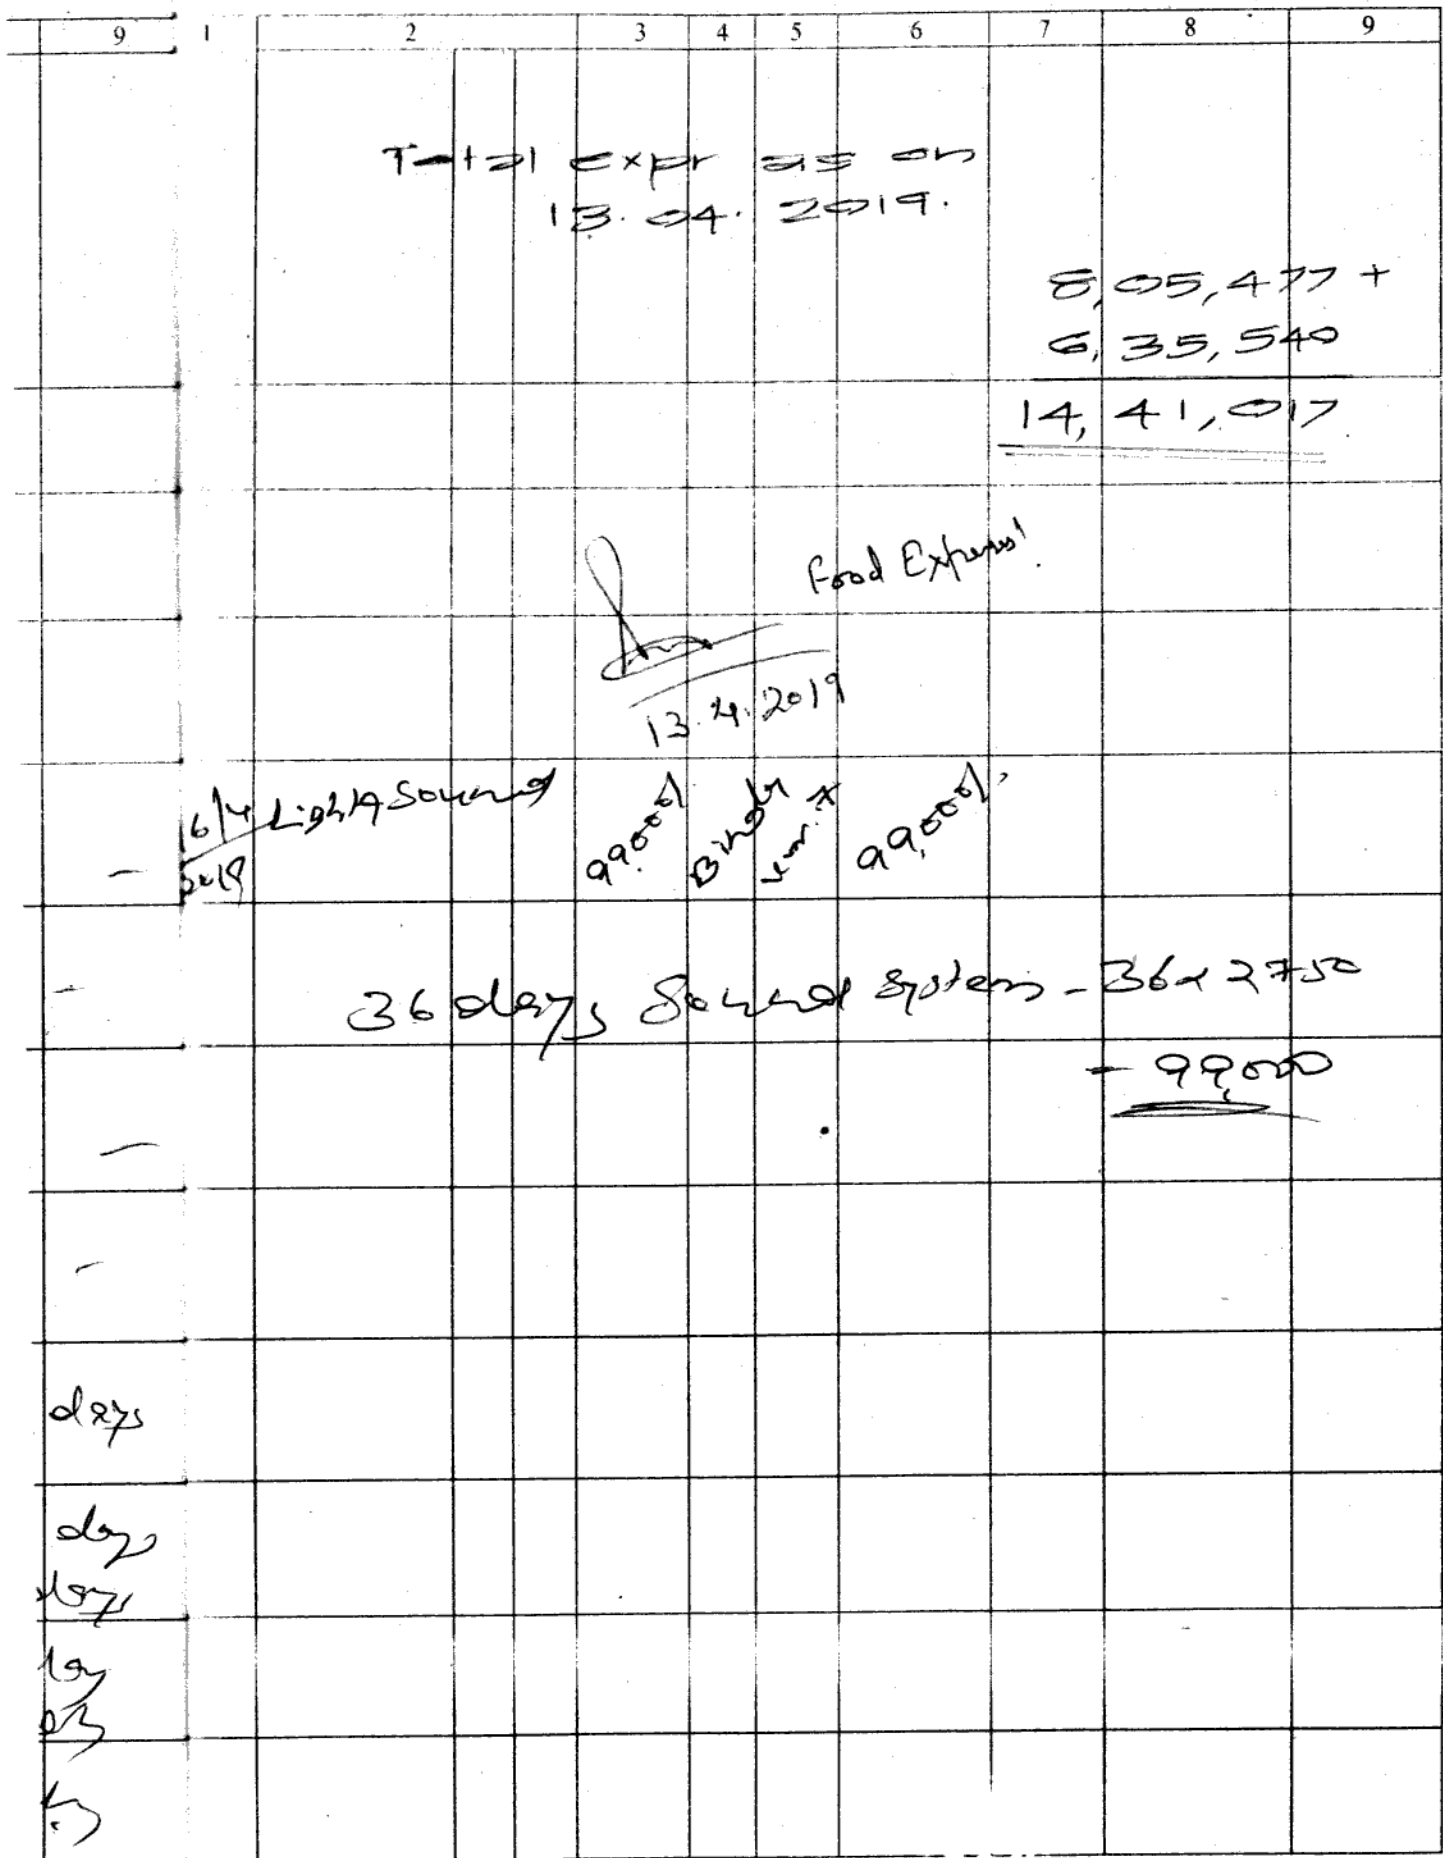 9 1 2 3 4 5 6 7 8 9
Total expr as on
13.04.2019.
8,05,477 +
6,35,540
14,41,017
Food Expenses!
13.4.2019
16/4/2019 Light & Sound 99000/- 99,000/-
36 days Sound System - 36 x 2750
- 99,000
days
days
days